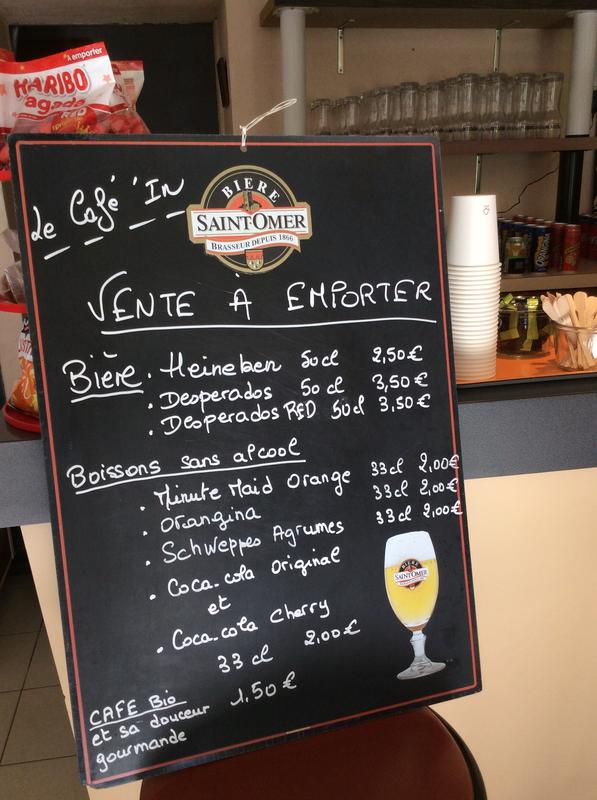 à emporter
HARIBO
Tagada
RED
BIERE
SAINT-OMER
BRASSEUR DEPUIS 1866
Le Café 'In
VENTE À EMPORTER
Bière . Heineken 50cl 2,50€
. Desperados 50 cl 3,50€
. Desperados RED 50cl 3,50€
Boissons sans alcool
. Minute Maid Orange 33cl 2,00€
. Orangina 33cl 2,00€
. Schweppes Agrumes 33cl 2,00€
. Coca-cola Original
et
. Coca-cola Cherry
33 cl 2,00€
BIERE
SAINT-OMER
CAFE Bio 1,50€
et sa douceur
gourmande